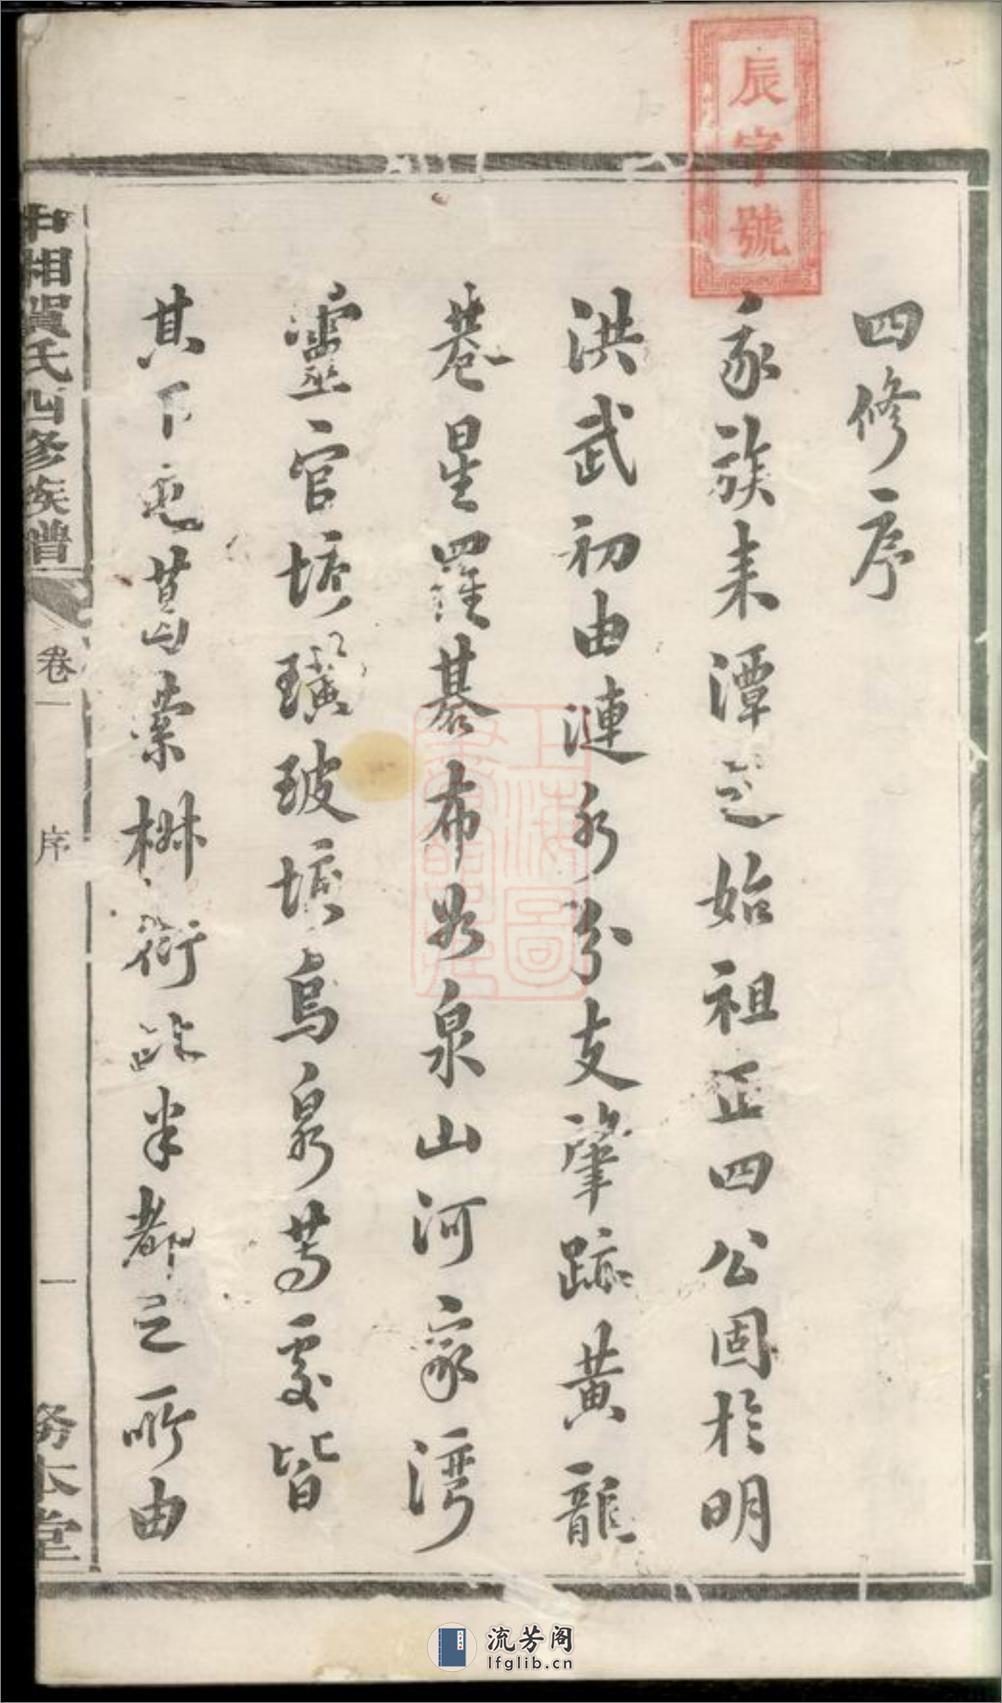 辰字號
四修序
家族來潭之始祖正四公固於明
洪武初由漣水分支肇跡黃龍
巷星羅碁布如泉山河家灣
靈官塘璜玻塘烏泉等處皆
其下也葛藟椒衍此半都之所由
中湘賀氏四修族譜
卷一
序
一
務本堂
上海圖
流芳阁
lfglib.cn